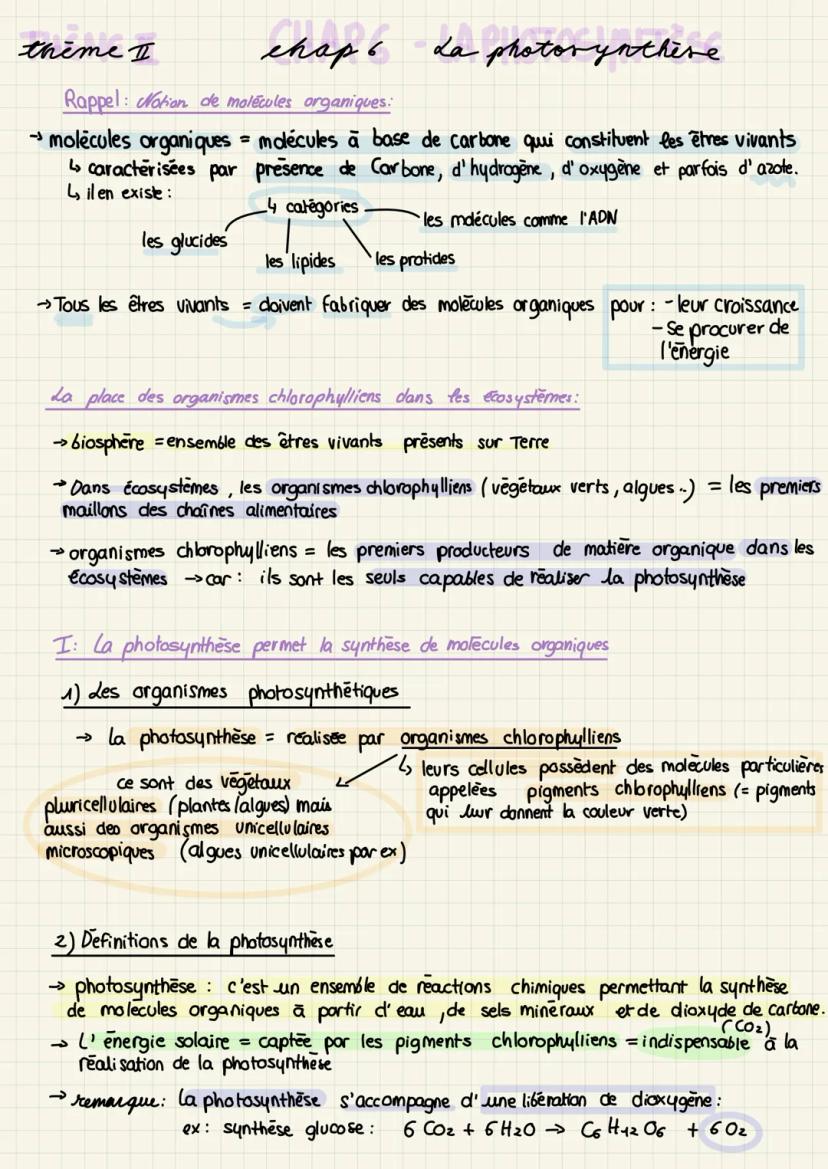 thème II chap 6 La photosynthèse
Rappel : Notion de molécules organiques:
→ molécules organiques = molécules à base de carbone qui constituent les êtres vivants
↳ caractérisées par présence de Carbone, d'hydrogène, d'oxygène et parfois d'azote.
↳ il en existe :
4 catégories
les glucides
les lipides
les protides
les molécules comme l'ADN
→ Tous les êtres vivants = doivent fabriquer des molécules organiques pour : - leur croissance
- se procurer de
l'énergie
La place des organismes chlorophylliens dans les écosystèmes:
→ biosphère = ensemble des êtres vivants présents sur Terre
→ Dans écosystèmes, les organismes chlorophylliens (végétaux verts, algues..) = les premiers
maillons des chaînes alimentaires
→ organismes chlorophylliens = les premiers producteurs de matière organique dans les
écosystèmes → car : ils sont les seuls capables de réaliser la photosynthèse
I: La photosynthèse permet la synthèse de molécules organiques
1) Les organismes photosynthétiques
→ la photosynthèse = réalisée par organismes chlorophylliens
↳ leurs cellules possèdent des molécules particulières
appelées pigments chlorophylliens (= pigments
qui leur donnent la couleur verte)
ce sont des végétaux
pluricellulaires (plantes/algues) mais
aussi des organismes unicellulaires
microscopiques (algues unicellulaires par ex)
2) Définitions de la photosynthèse
→ photosynthèse : c'est un ensemble de réactions chimiques permettant la synthèse
de molécules organiques à partir d'eau, de sels minéraux et de dioxyde de carbone.
(CO2)
→ L'énergie solaire = captée par les pigments chlorophylliens = indispensable à la
réalisation de la photosynthèse
→ remarque: la photosynthèse s'accompagne d'une libération de dioxygène :
ex : synthèse glucose : 6 CO2 + 6 H2O → C6 H12 O6 + 6 O2